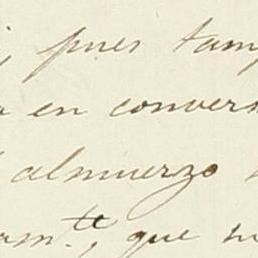 , pues tamp
a en convers
almuerzo
am.te, que n